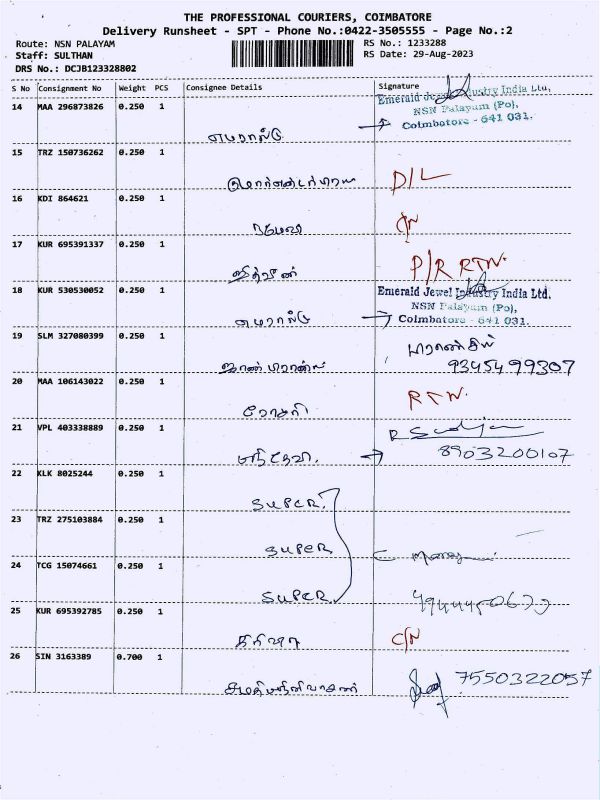 THE PROFESSIONAL COURIERS, COIMBATORE
Delivery Runsheet - SPT - Phone No.:0422-3505555 - Page No.:2
Route: NSN PALAYAM
Staff: SULTHAN
DRS No.: DCJB123328802
RS No.: 1233288
RS Date: 29-Aug-2023
S No Consignment No Weight PCS Consignee Details Signature
14 MAA 296873826 0.250 1
எமரால்டு
Emerald Jewel Industry India Ltd,
NSN Palayam (Po),
Coimbatore - 641 031.
15 TRZ 150736262 0.250 1
D/L
16 KDI 864621 0.250 1
C/N
17 KUR 695391337 0.250 1
P/R RTN.
18 KUR 530530052 0.250 1
எமரால்டு
Emerald Jewel Industry India Ltd.
NSN Palayam (Po),
Coimbatore - 641 031.
19 SLM 327080399 0.250 1
9345499307
20 MAA 106143022 0.250 1
RTN.
21 VPL 403338889 0.250 1
ஸ்ரீதேவி.
8903200107
22 KLK 8025244 0.250 1
SUPER.
23 TRZ 275103884 0.250 1
SUPER
24 TCG 15074661 0.250 1
SUPER.
25 KUR 695392785 0.250 1
C/N
26 SIN 3163389 0.700 1
7550322057